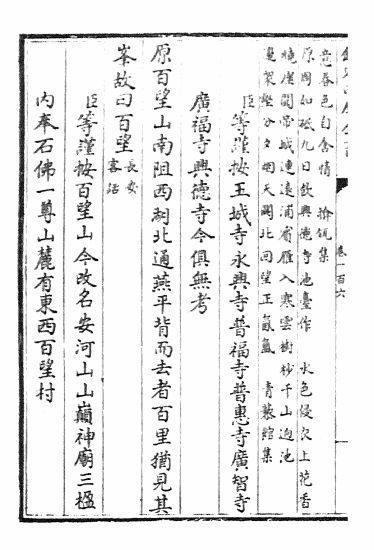 卷一百六
意春色自含情 集
原周如砥九日飲興德寺池臺作 水色侵衣上花香
繞聞帶城連遠浦宿雁入寒雲樹杪千山迥池
邊眾壑分夕烟天闕北回望正氤氳 青藜館集
臣等謹按王城寺永興寺普福寺普惠寺廣智寺
廣福寺興德寺今俱無考
原百望山南阻西湖北通燕平背而去者百里猶見其
峯故曰百望 長安客話
臣等謹按百望山今改名安河山山巔神廟三楹
內奉石佛一尊山麓有東西百望村